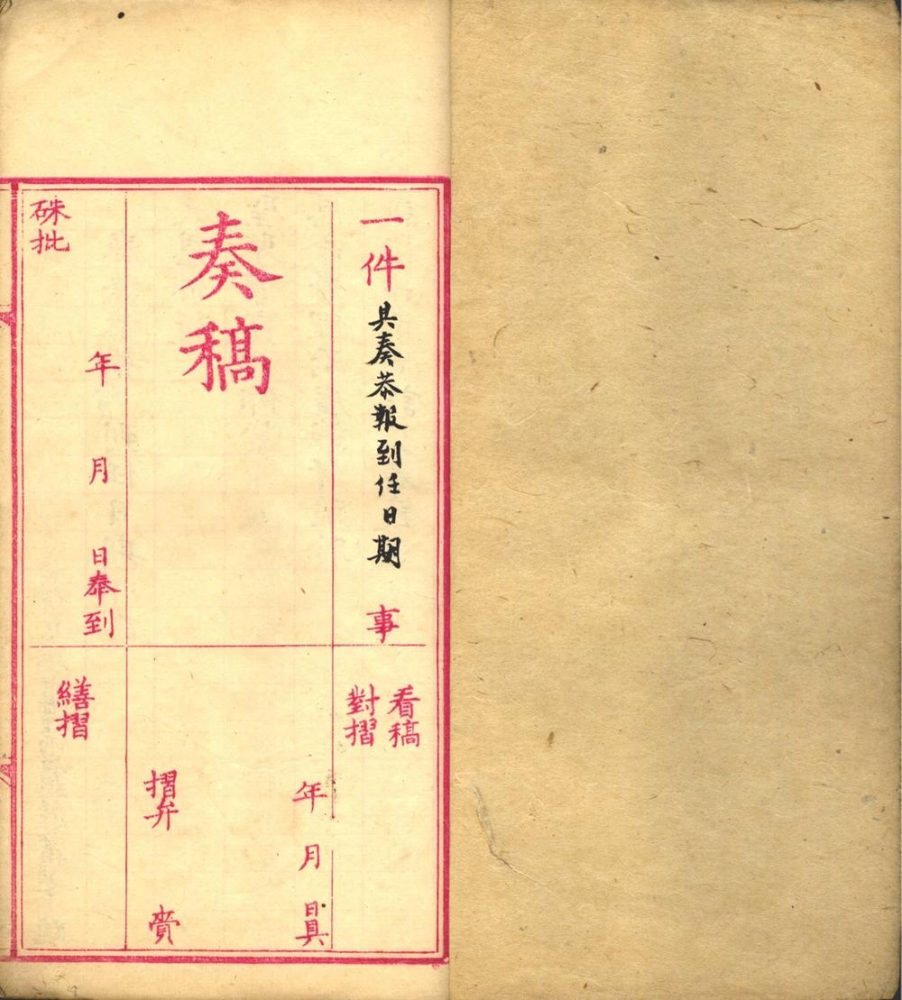 一件具奏恭報到任日期事
看稿
對摺
年月日具
奏稿
摺弁賫
年月日奉到
硃批
繕摺